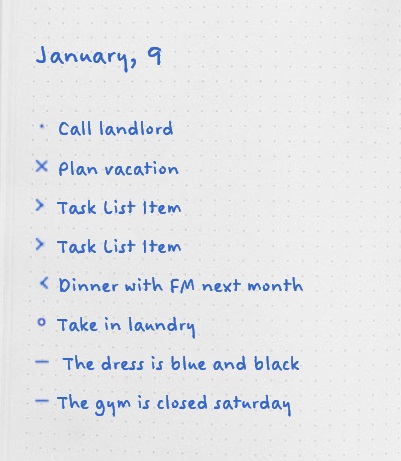 January, 9
· Call landlord
× Plan vacation
> Task List Item
> Task List Item
< Dinner with FM next month
o Take in laundry
– The dress is blue and black
– The gym is closed saturday